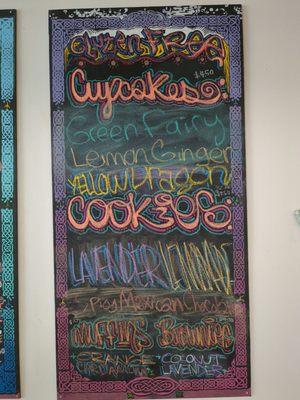 Gluten Free
Cupcakes: $4.50
Green Fairy
Lemon Ginger
Yellow Dragon
Cookies:
LAVENDER LEMONADE
Mexican
MUFFINS Brownies
ORANGE COCONUT
CARDAMOM LAVENDER